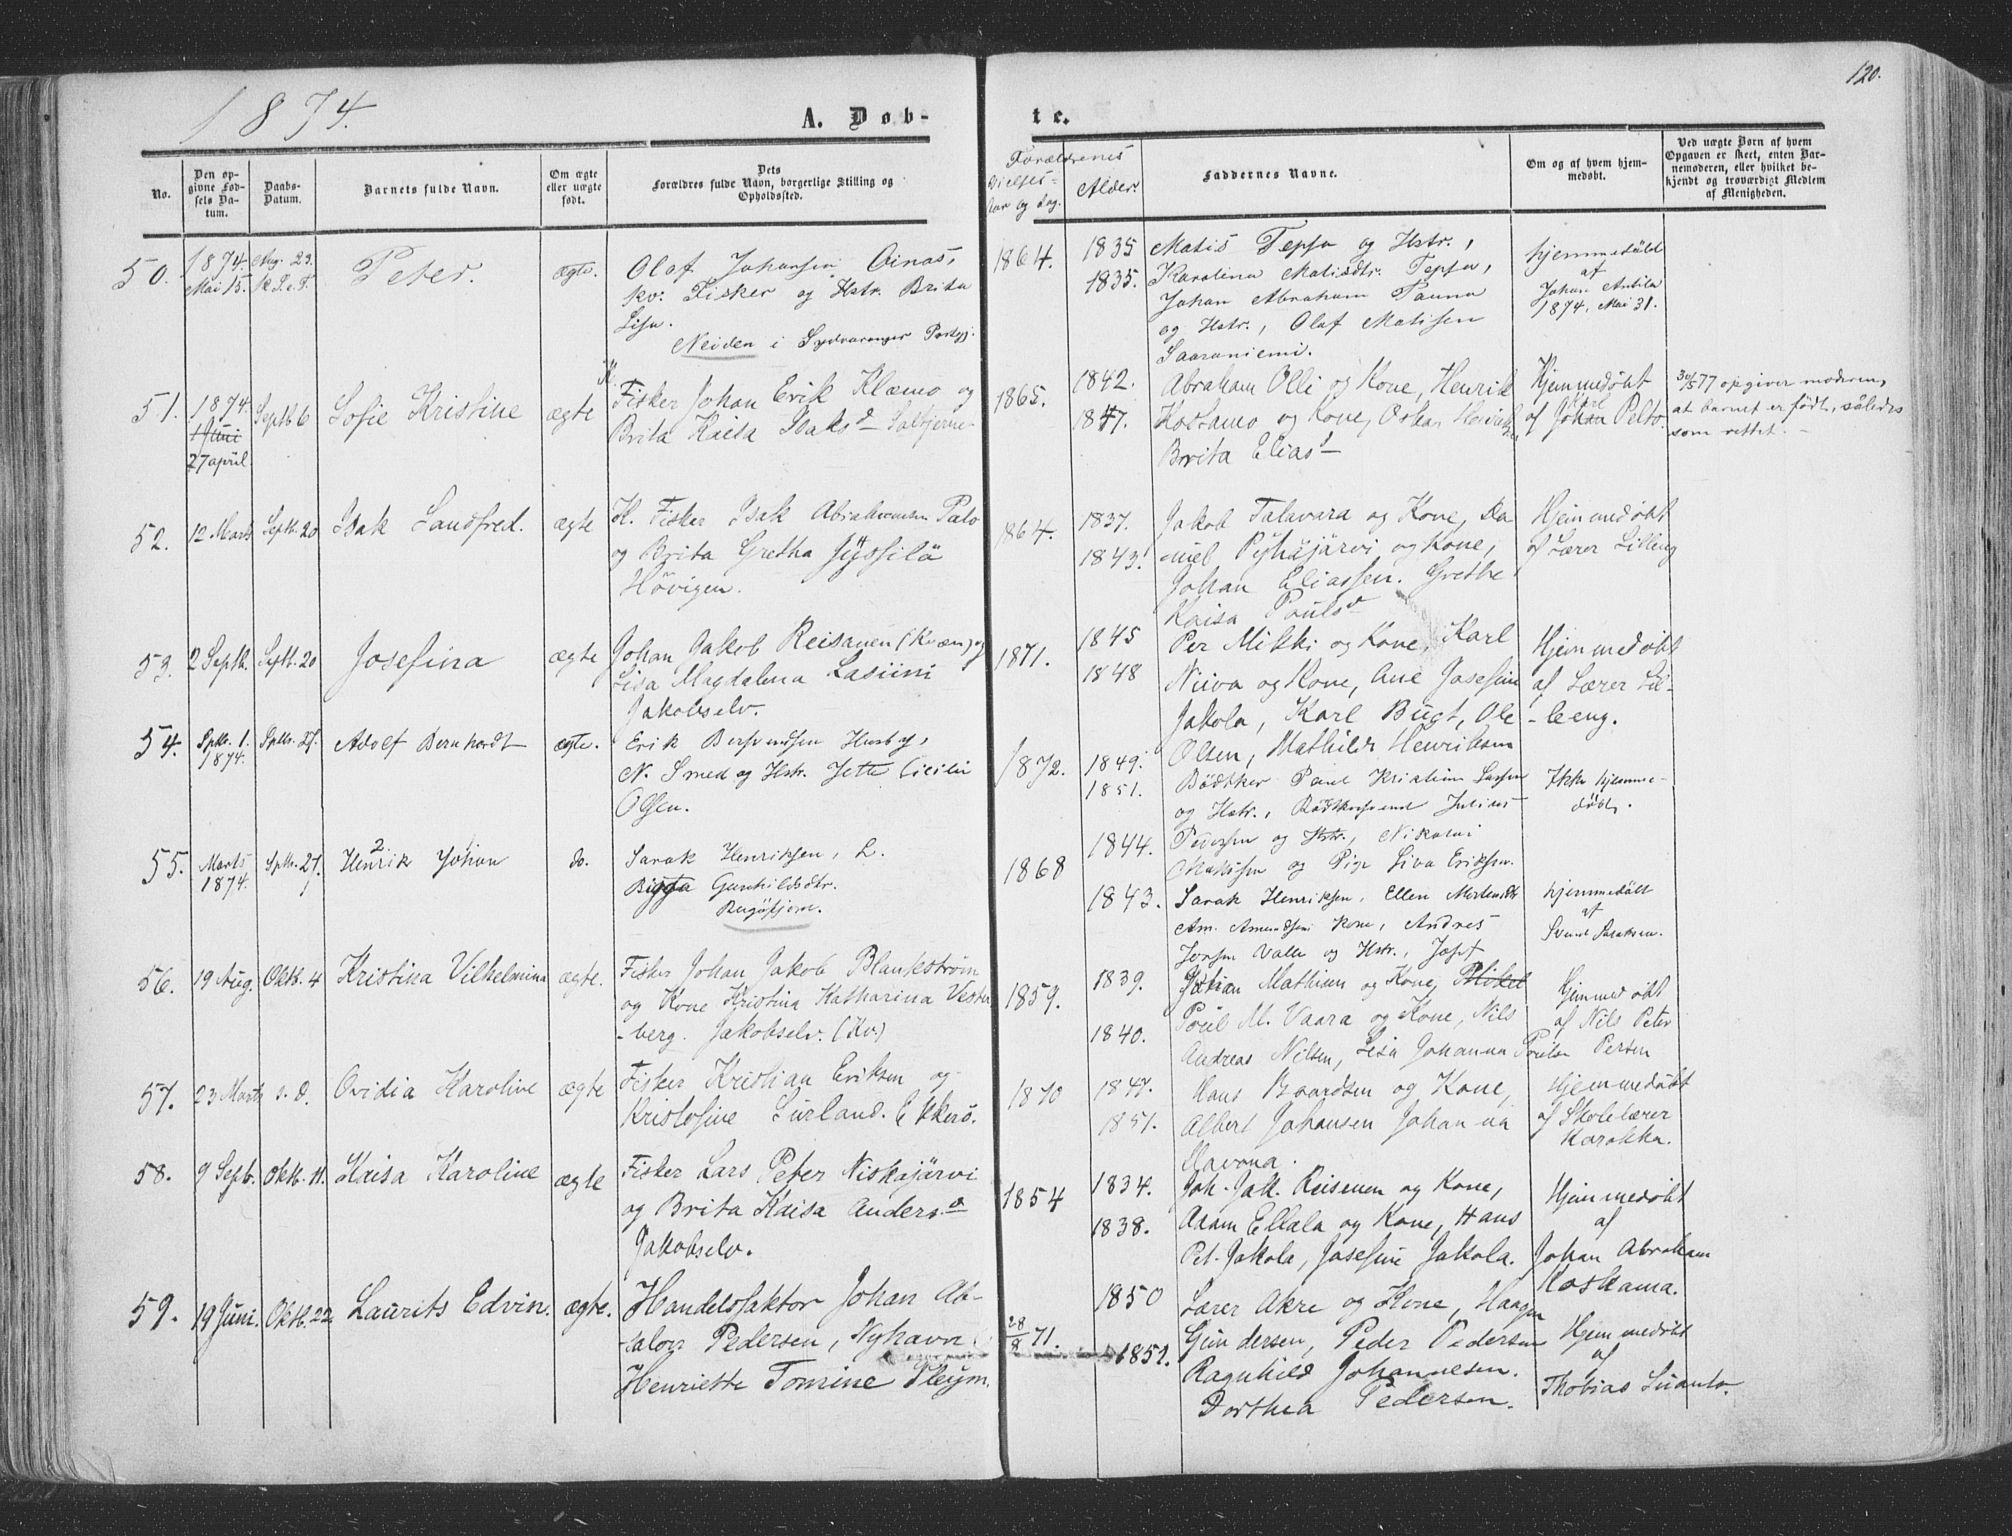 120.
1874.
A. Døb-
te.
No.
Den op-
givne Fød-
sels Da-
tum.
Daabs-
Datum.
Barnets fulde Navn.
Om ægte
eller uægte
født.
Dets
Forældres fulde Navn, borgerlige Stilling og
Opholdssted.
Forældrenes
Vielses-
Aar og Dag.
Alder.
Faddernes Navne.
Om og af hvem hjem-
medøbt.
Ved uægte Børn af hvem
Opgaven er skeet, enten Bar-
nemoderen, eller hvilket be-
kjendt og troværdigt Medlem
af Menigheden.
50.
1874.
Mai 15.
Aug. 23.
Peter.
ægte.
Olaf Johansen Oinas,
kv: Fisker og Hstr. Brita
Lisa.
Neiden i Sydvaranger Præstgj.
1864.
1835
1835.
Matis Tepsa og Hstr.,
Karolina Matisdtr. Tepsa,
Johan Abraham Pauna
og Hstr., Olaf Matisen
Saaraniemi.
hjemmedøbt
af
Johan Antila
1874. Mai 31.
51.
1874.
1 Juni
27 april.
Septb 6
Sofie Kristine
ægte
K.
Fisker Johan Erik Klæmo og
Brita Kaisa Isaksd
1865.
1842.
1847.
Abraham Olli og Kone, Henrik
Kostamo og Kone, Oskar
Brita Eliasd
Hjemmedøbt
af Johan Karl Pelto.
30/5 77 opgiver moderen,
at barnet er født, således
som rettet. -
52.
12 Marts
Septb. 20
Isak Sandfred.
ægte
K. Fisker Isak Abrahamsen Palo
og Brita Gretha Sÿssilä
Hövigen.
1864.
1837.
1843.
Jakob Talavara og Kone, Da
niel Pyhäjärvi og Kone,
Johan Eliassen. Grethe
Kaisa Paulsd
Hjemmedøbt
af Lærer Lilleng
53.
2 Septb.
Septb. 20
Josefina
ægte
Johan Jakob Reisanen (Kvæn) og
Lisa Magdalena Lasiini
Jakobselv.
1871.
1845
1848
Per Mikki og Kone, Karl
Niiva og Kone, Ane Josefine
Jakola, Karl Bugt, Ole
Olsen, Mathilde Henriksen
Hjemmedøbt
af Lærer Lil-
-leeng.
54.
Sptbr. 1.
1874.
Sptbr. 27.
Adolf Bernhardt
ægte.
Erik Bersvendsen Husby,
N. Smed og Hstr. Jette Cicilie
Olsen.
1872.
1849.
1851.
Bödtker Paul Kristian Larsen
og Hstr., Bödtkersvend Julius
Pedersen og Hstr., Nikolai
Mathisen og Pige Lina Eriksen.
Ikke hjemme-
døbt.
55.
2.
Marts
1874.
Sptbr. 27.
Henrik Johan
do.
Sarak Henriksen, L.
Bigga Gunhildsdtr.
Bugöfjord.
1868
1844.
1843.
Sarak Henriksen, Ellen Mortensdtr
Am. Amundsens Kone, Andres
Jorsen Valle og Hstr., Josef
hjemmedøbt
af
Svend Saraksen.
56.
19 Aug.
Oktb. 4
Kristina Vilhelmina
ægte.
Fisker Johan Jakob Blankström
og Kone Kristina Katharina Vester
-berg. Jakobselv. (Kv.)
1859.
1839.
1840.
Johan Mathisen og Kone, Mikel
Poul M. Vaara og Kone, Nils
Andreas Nilsen, Lisa Johanna Poulsen
Hjemmedøbt
af Nils Peter
Persen
57.
23 Marts
s. d.
Ovidia Karoline
ægte
Fisker Kristian Eriksen og
Kristofine Surland. Ekkerö.
1870
1847.
1851.
Hans Baardsen og Kone,
Albert Johansen Johanna
Mavona.
Hjemmedøbt
af Skolelærer
Karakka.
58.
9 Septb.
Oktb. 11.
Kaisa Karoline
ægte
Fisker Lars Peter Niskajärvi
og Brita Kaisa Andersd
Jakobselv.
1854
1834.
1838.
Joh. Jak. Reisenen og Kone,
Adam Ellala og Kone, Hans
Pet. Jakola, Josefine Jakola.
Hjemmedøbt
af
Johan Abraham
Koskama.
59.
19 Juni.
Oktb. 22.
Laurits Edvin.
ægte.
Handelsfaktor Johan Ab-
salon Pedersen, Nyhavn
Henriette Tomine Pleym.
28/8 71.
1850
1852.
Lærer Akre og Kone, Haagen
Gundersen, Peder Pedersen
Ragnhild Johannesen.
Dorthea Pedersen.
Hjemmedøbt
af
Thobias Suanto.